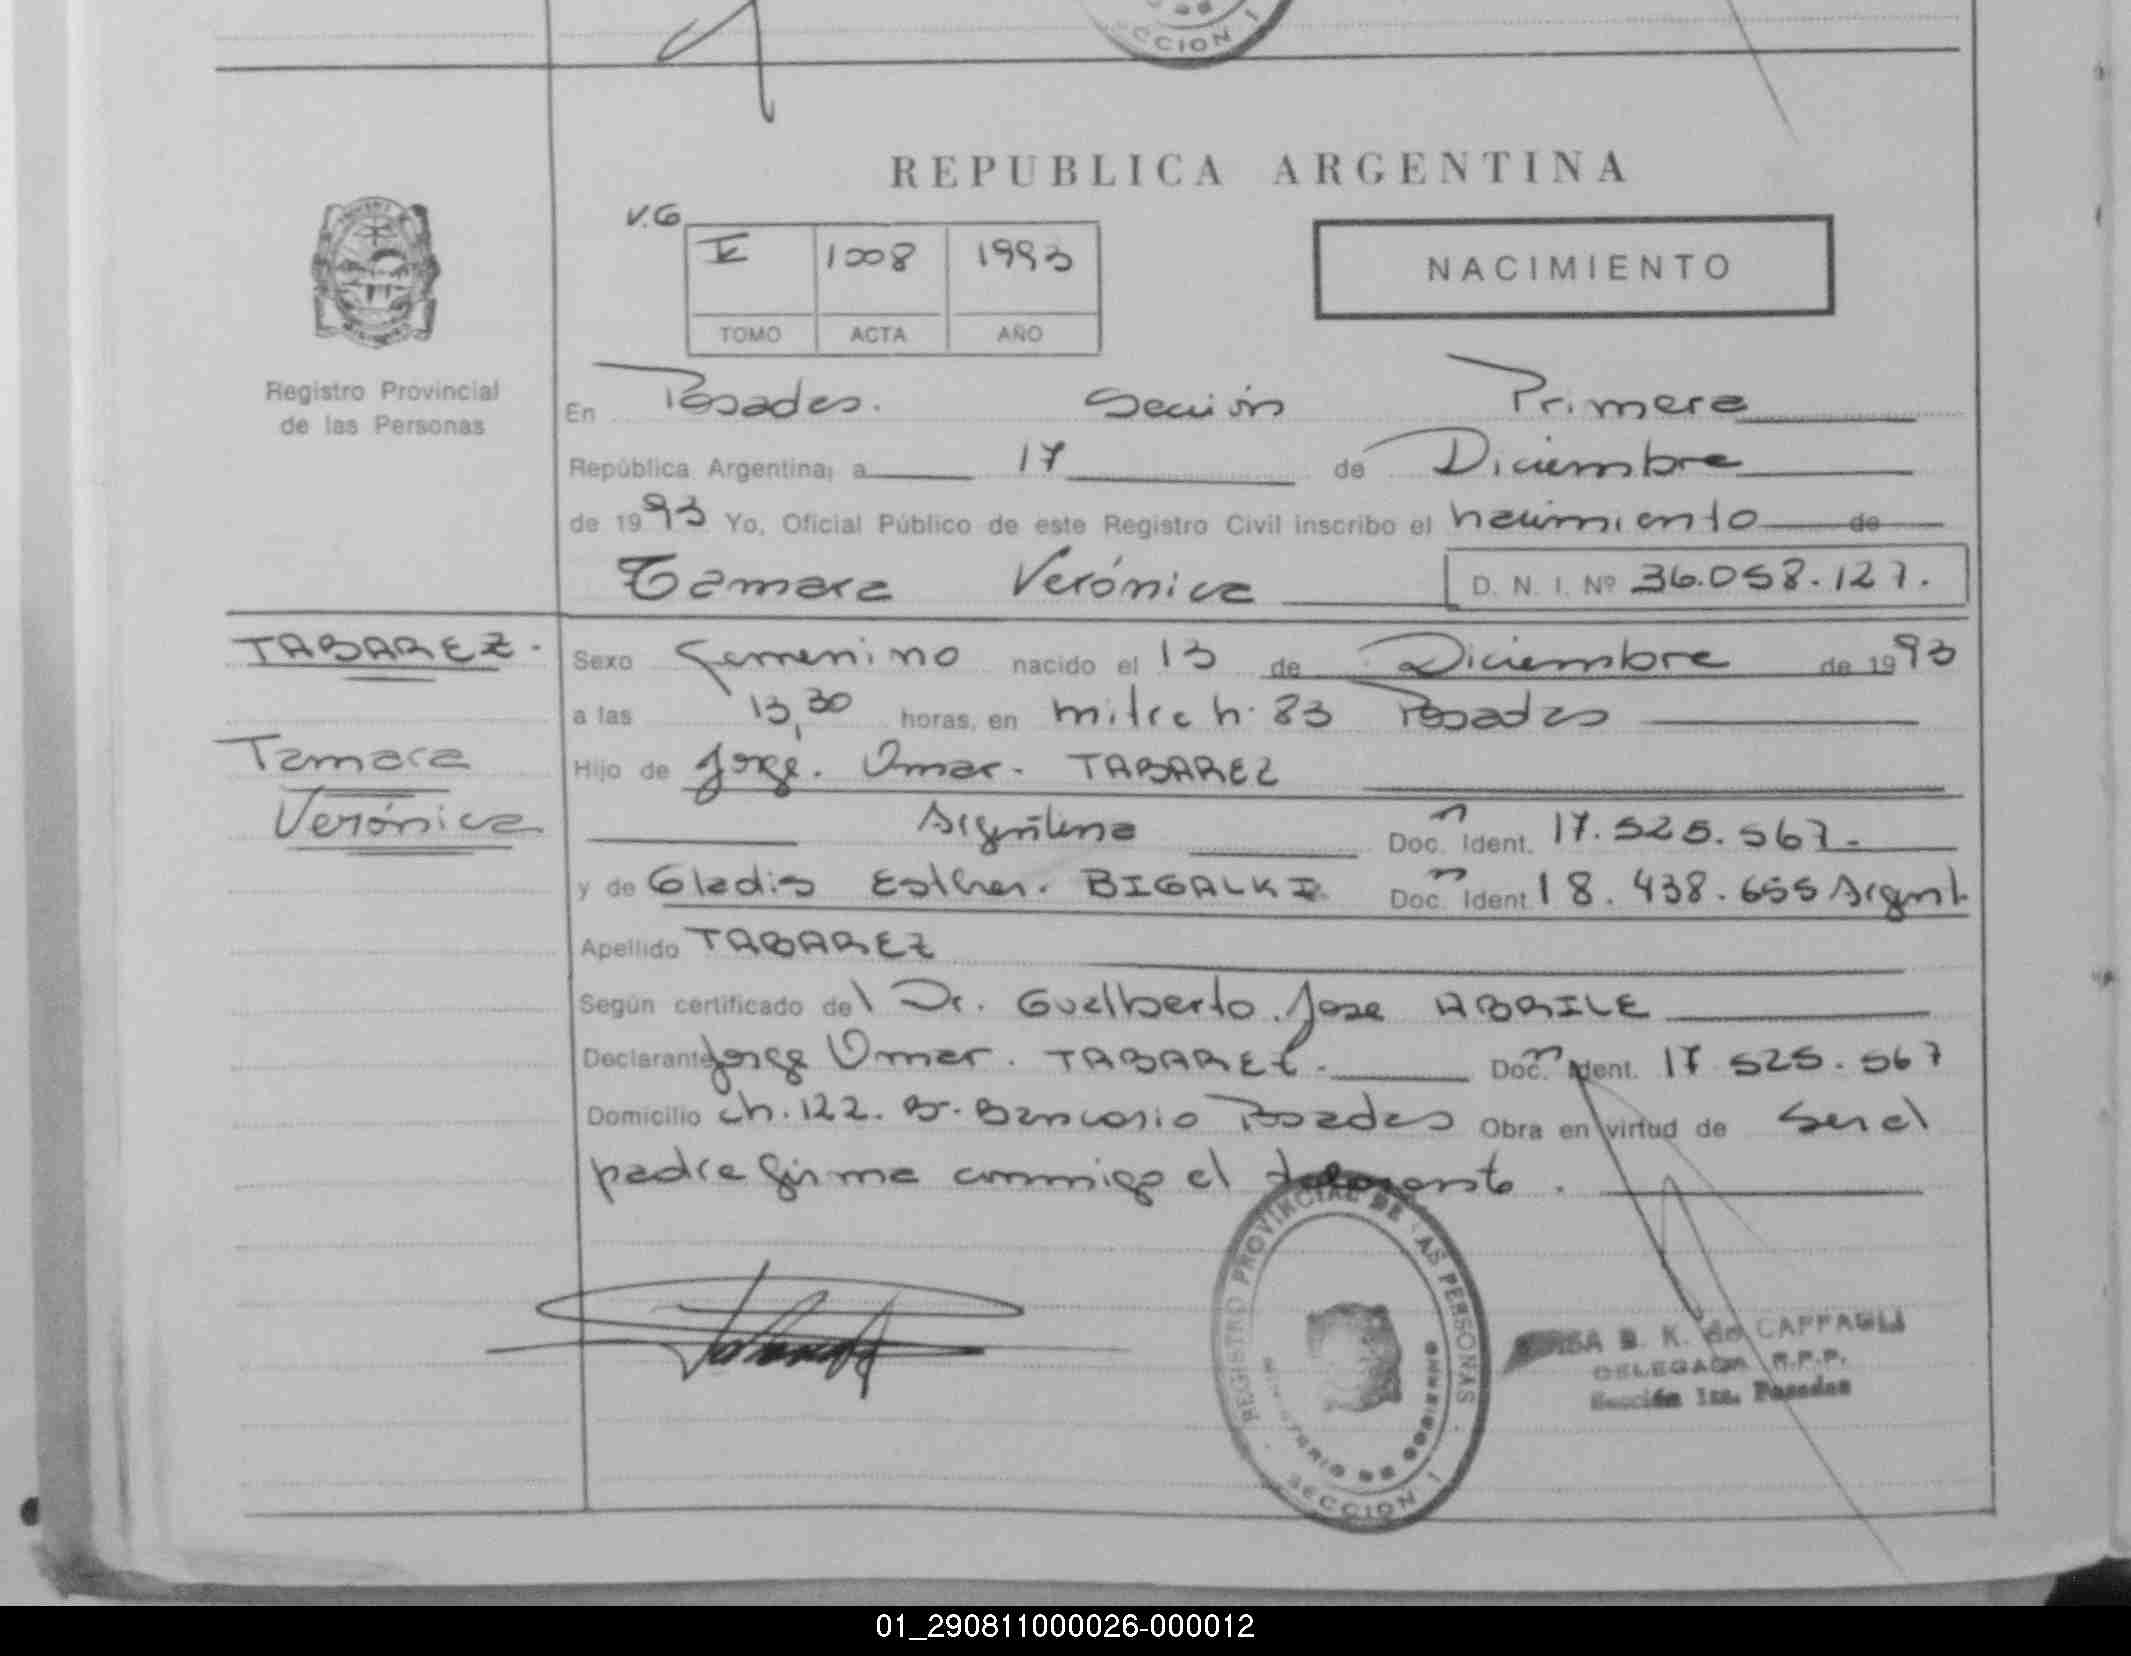 CCION 1
REPUBLICA ARGENTINA
V.G
V 1008 1993
TOMO ACTA AÑO
NACIMIENTO
Registro Provincial
de las Personas
En Posadas. Sección Primera
República Argentina, a 17 de Diciembre
de 1993 Yo, Oficial Público de este Registro Civil inscribo el nacimiento de
Tamara Verónica D. N. I. Nº 36.058.127.
TABAREZ.
Sexo Femenino nacido el 13 de Diciembre de 1993
a las 13,30 horas, en mitre h. 83 Posadas
Tamara
Verónica
Hijo de Jorge. Omar. TABAREZ
Argentina Doc. Ident. 17.525.567.
y de Gladis Esther. BIGALKI Doc. Ident. 18.438.655 Argent.
Apellido TABAREZ
Según certificado del Dr. Gualberto José ABRILE
Declarante Jorge Omar. TABAREZ. Doc. Ident. 17 525.567
Domicilio ch. 122. Bº. Bancario Posadas Obra en virtud de Ser el
padre firma conmigo el
REGISTRO PROVINCIAL DE LAS PERSONAS
MINISTERIO DE GOBIERNO
SECCION 1
B. K. de CAFFAGLI
DELEGADA R.P.P.
Sección 1ra. Posadas
01_290811000026-000012